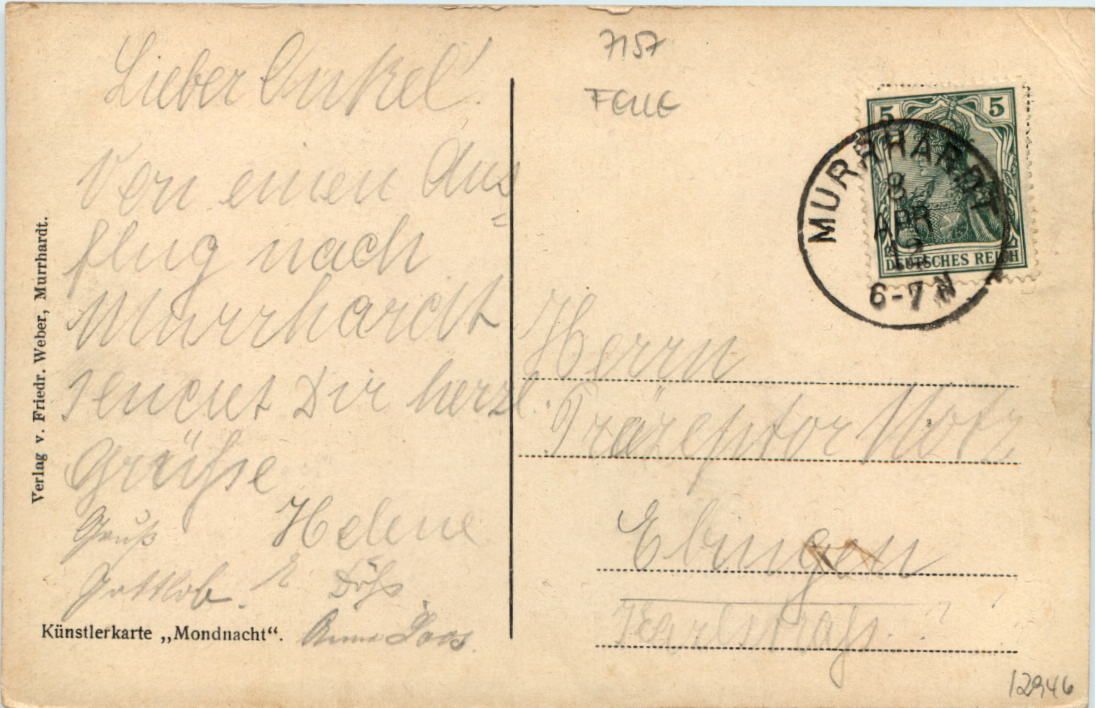 Lieber Onkel!
Von einen Aus=
flug nach
Murrhardt
sendet Dir herzl.
Grüße
Helene
Gruß
Gottlob.
Anna Loos
Künstlerkarte „Mondnacht“.
Verlag v. Friedr. Weber, Murrhardt.
7157
FELLE
5 5
DEUTSCHES REICH
MURRHARDT
8
APR
6-7 N
Herrn
Präzeptor Motz
Ebingen
Karlstraße
12946